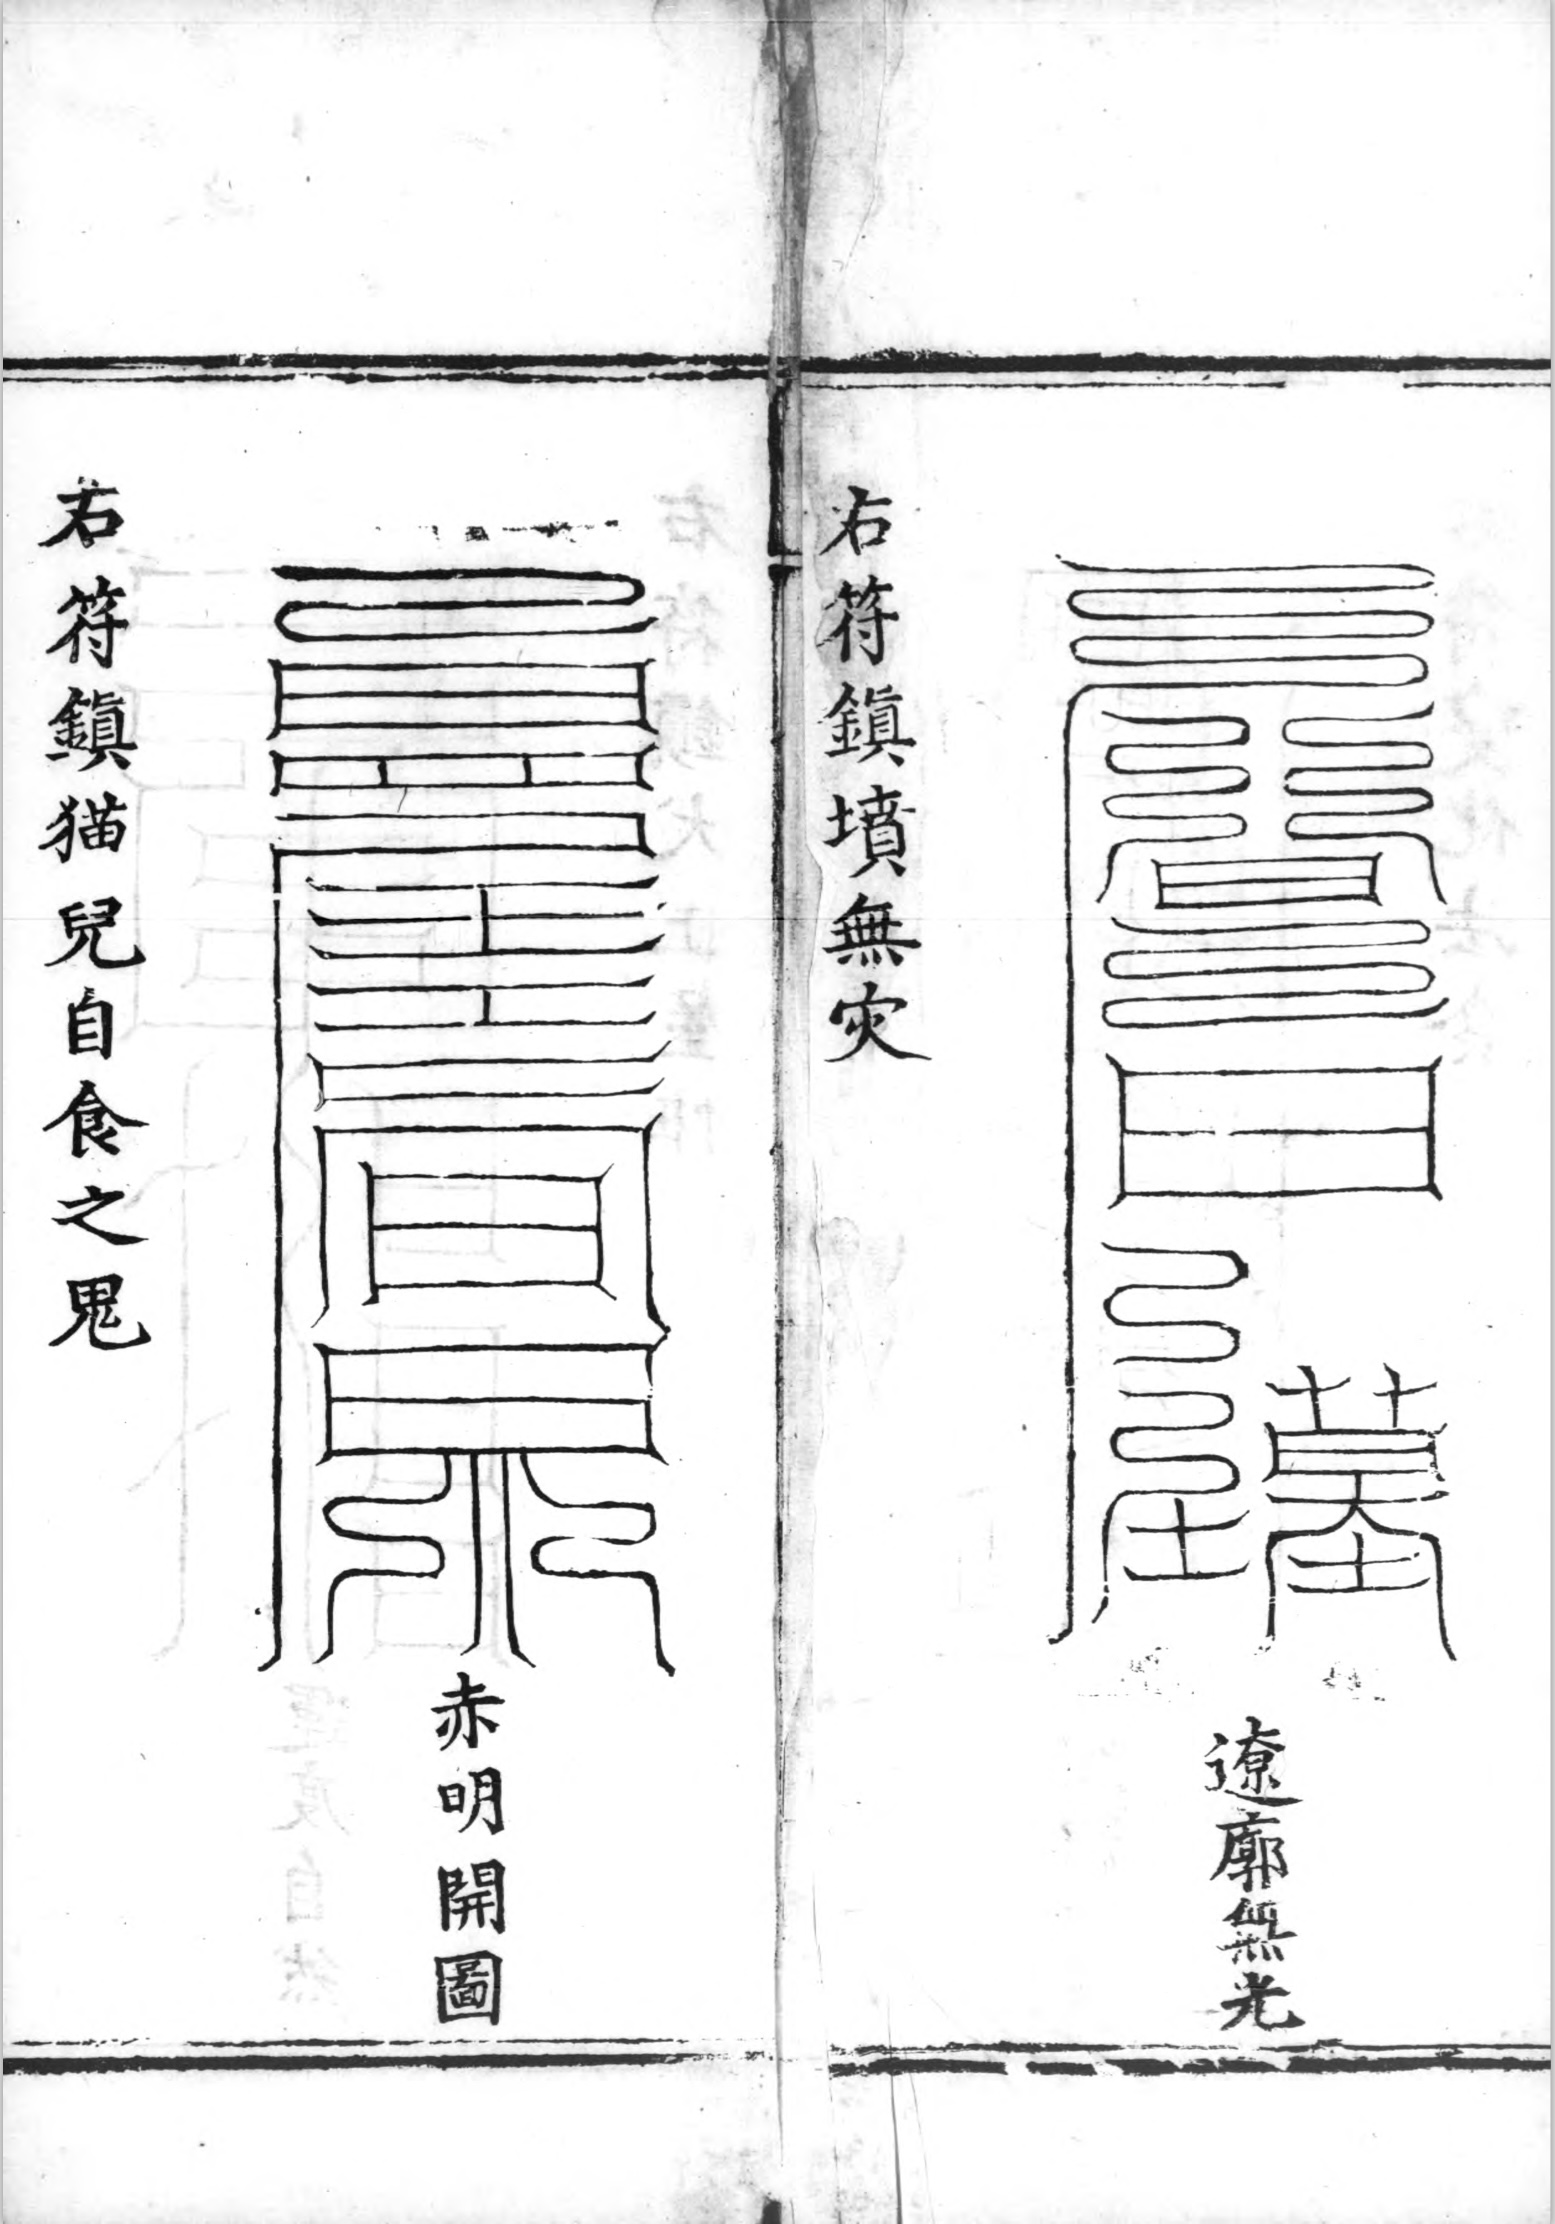 遼廓無光
右符鎮墳無灾
赤明開圖
右符鎮猫兒自食之鬼